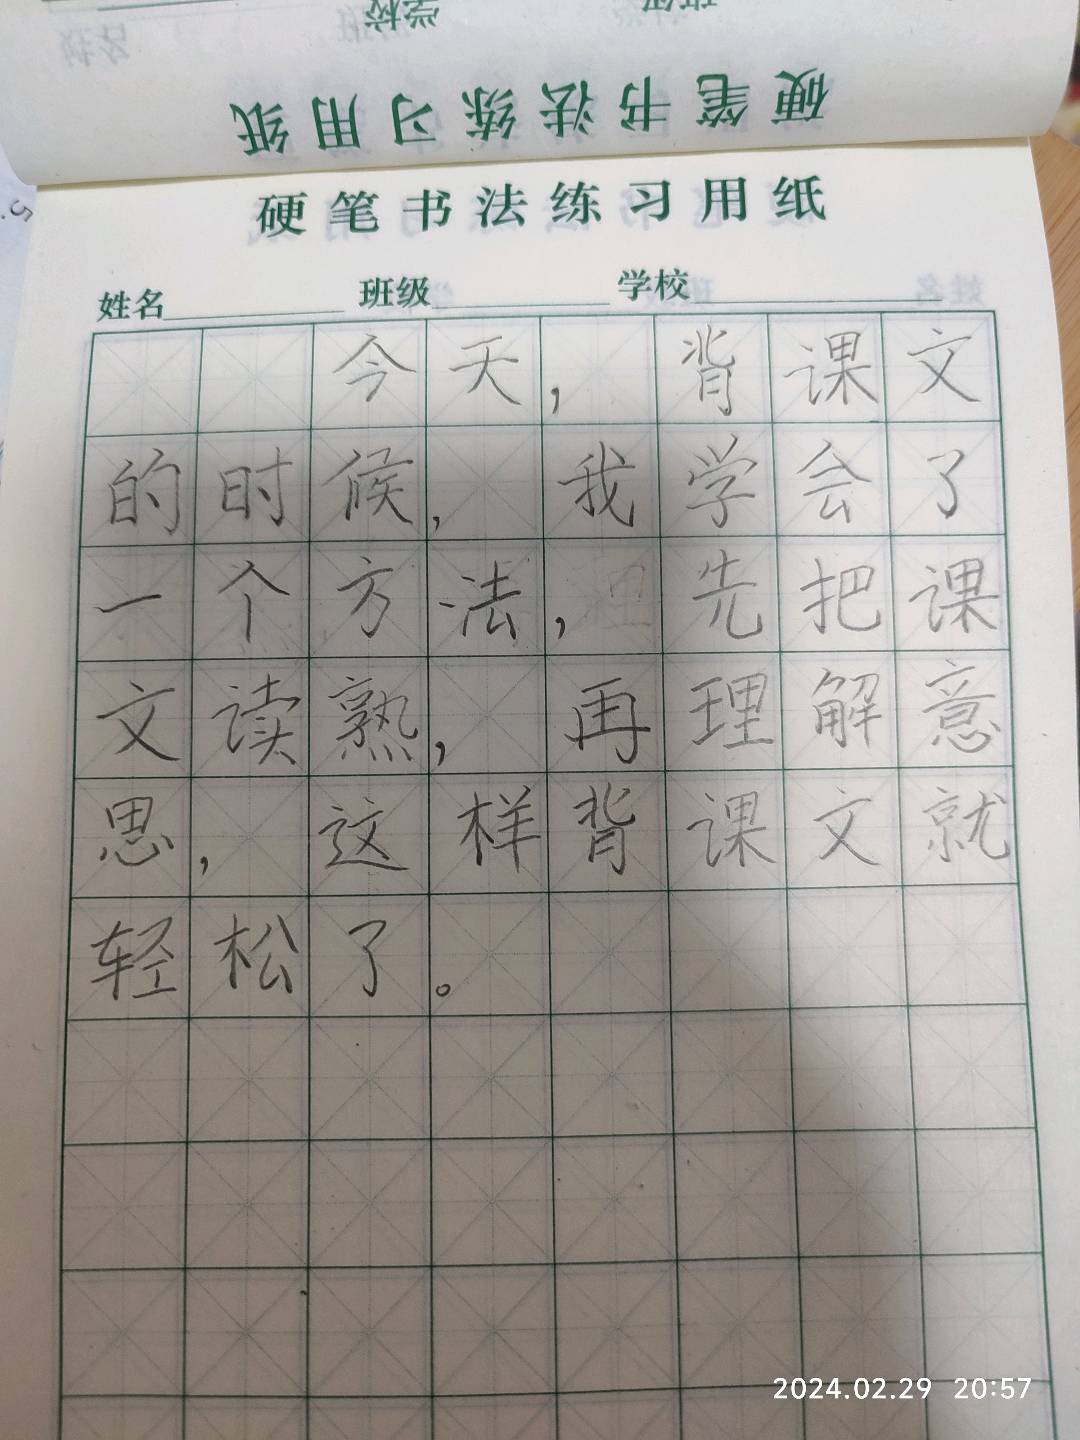 学校 班级
硬笔书法练习用纸
硬笔书法练习用纸
姓名 班级 学校
今天，背课文
的时候，我学会了
一个方法，先把课
文读熟，再理解意
思，这样背课文就
轻松了。
2024.02.29 20:57